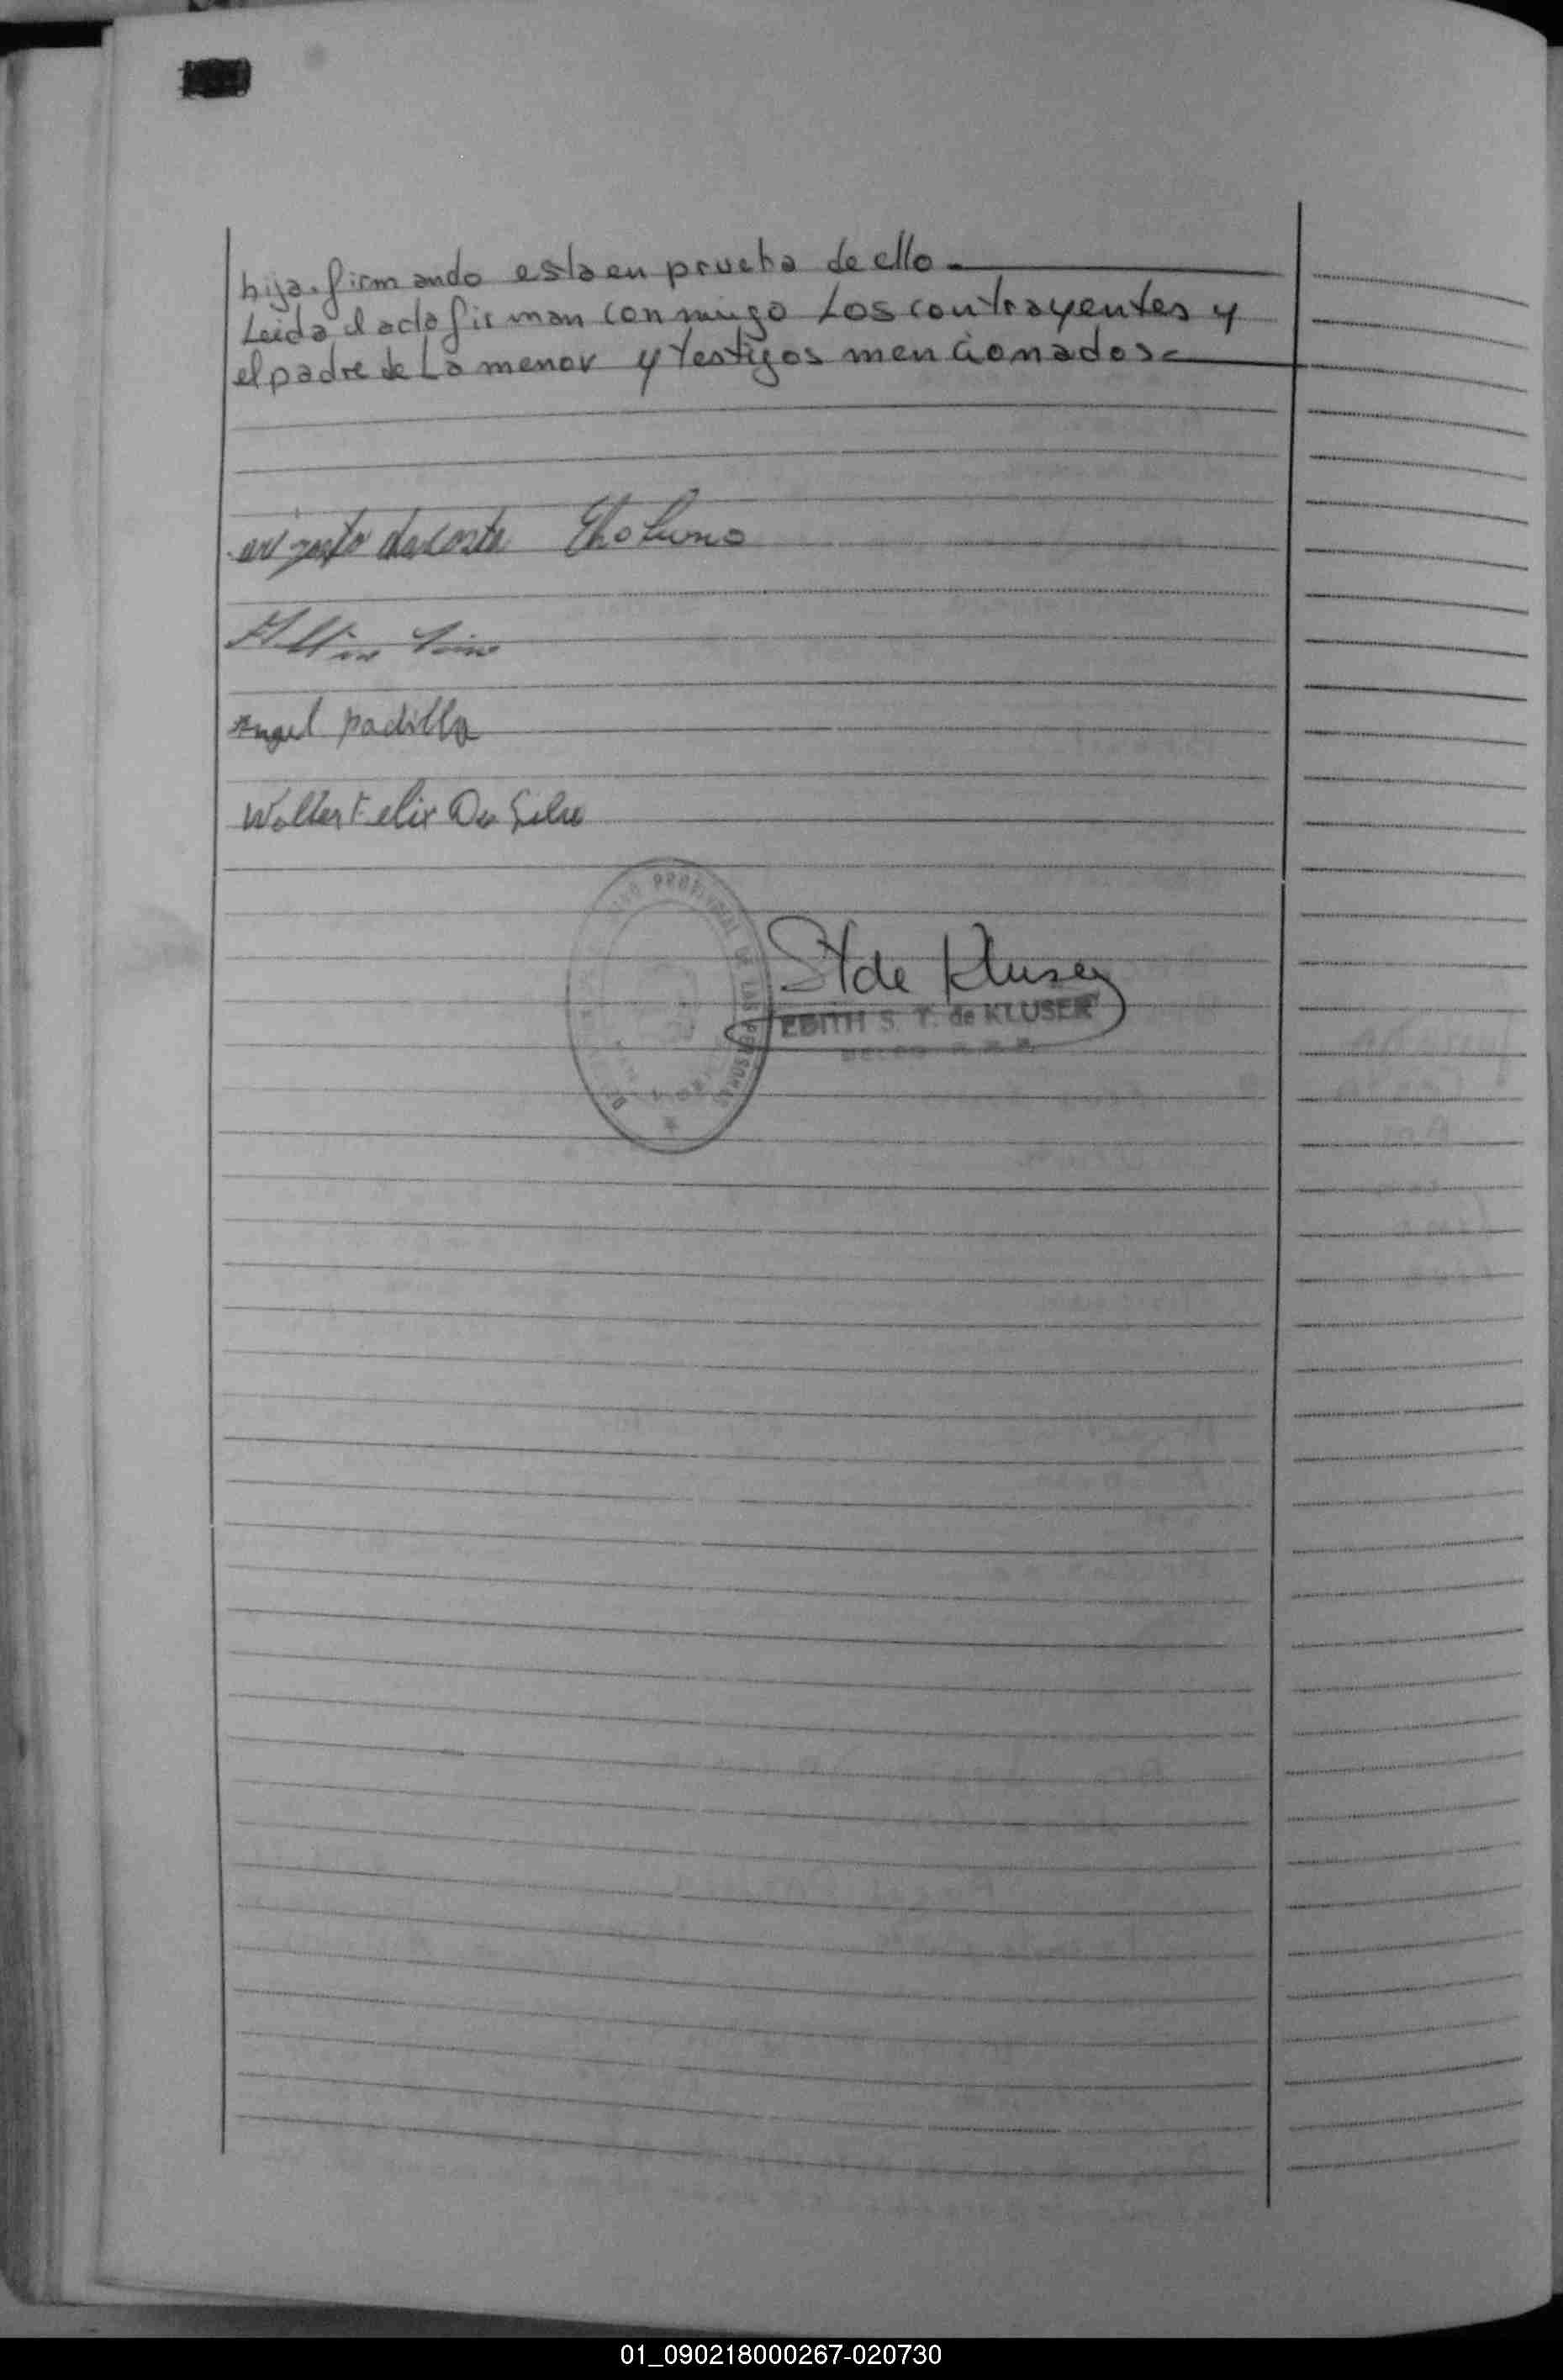 hija. firmando esta en prueba de ello.
Leida el acta firman conmigo Los contrayentes y
el padre de La menor y testigos mencionados.
dacosta
Angel padilla
Walter Felix Da Silva
PROVINCIAL DE LAS PERSONAS
S T de Kluser
EDITH S. T. de KLUSER
01_090218000267-020730